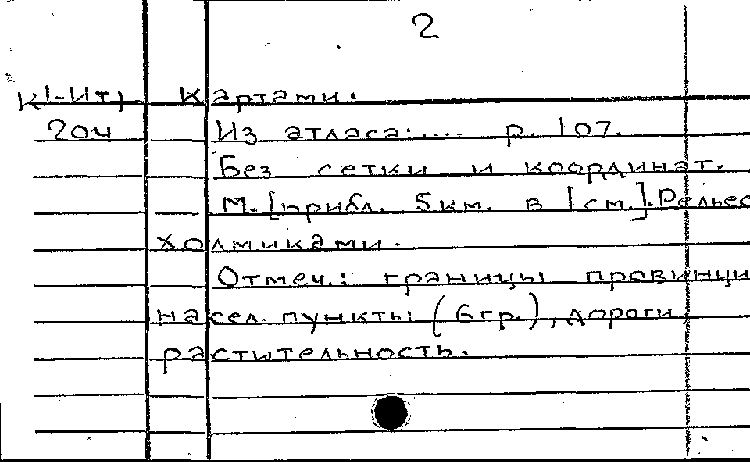 2
К1-Ит1 картами.
204 Из атласа:.... р. 107.
Без сетки и координат.
М.[прибл. 5км. в 1см.].Рельеф
холмиками.
Отмеч.: границы провинци
насел. пункты (6гр.), дороги
растительность.